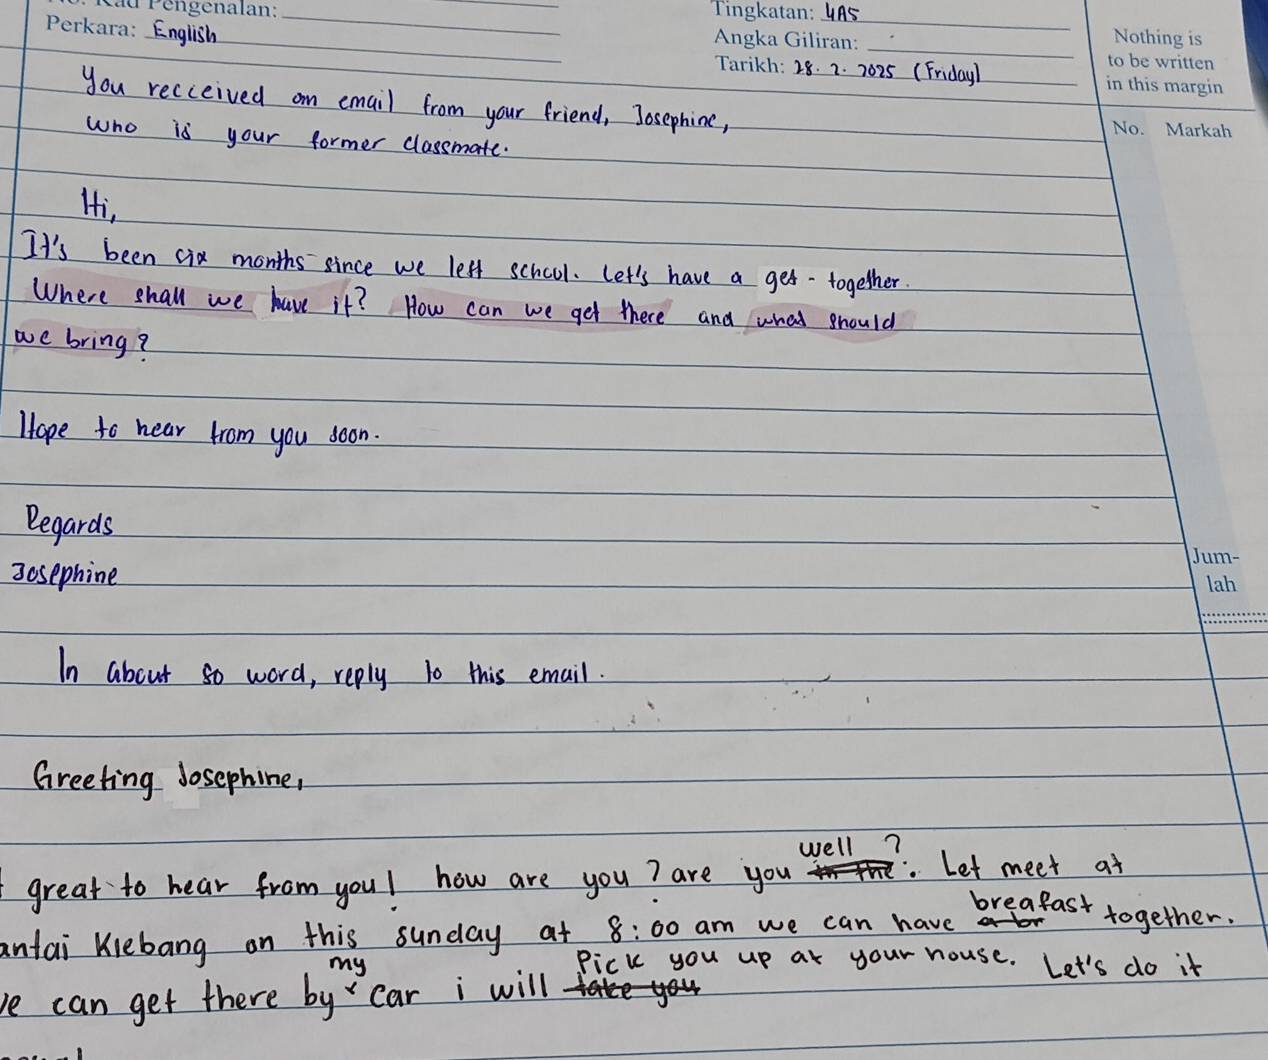 Pengenalan:
Perkara: English
Tingkatan: 4A5
Angka Giliran:
Tarikh: 28. 2. 2025 (Friday)
Nothing is
to be written
in this margin
No. Markah
You recceived an email from your friend, Josephine,
who is your former classmate.
Hi,
It's been six months since we left school. Let's have a get - together.
Where shall we have it? How can we get there and what should
we bring?
Hope to hear from you soon.
Regards
Josephine
Jum-
lah
In about 80 word, reply to this email.
Greeting Josephine,
great to hear from you! how are you? are you well ? Let meet at
antai Klebang on this sunday at 8:00 am we can have breafast together.
can get there by my car i will Pick you up at your house. Let's do it